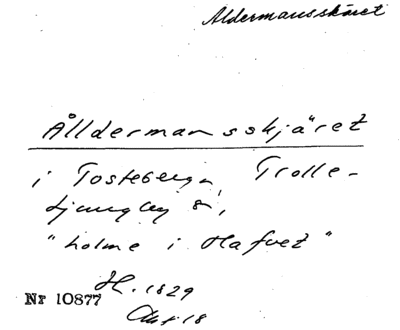 Aldermansskäret
Ålldermansskjäret
i Tosteberga, Trolle-
Ljungby s,
"holme i Hafvet"
H. 1829
Nr 10877
Akt 18